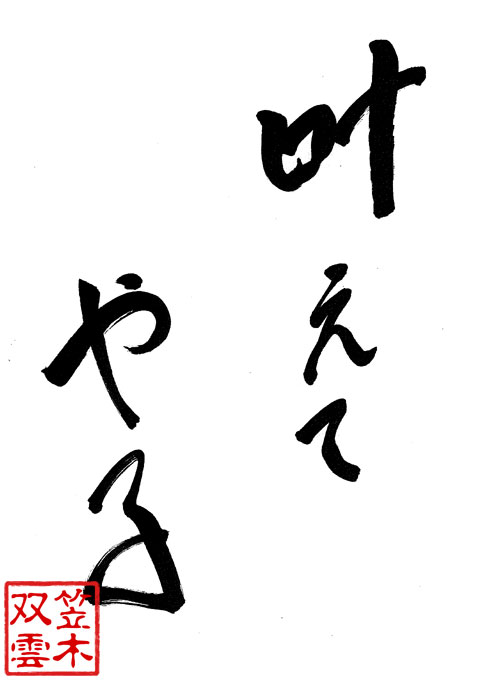 叶えて
やる
笠木
双雲